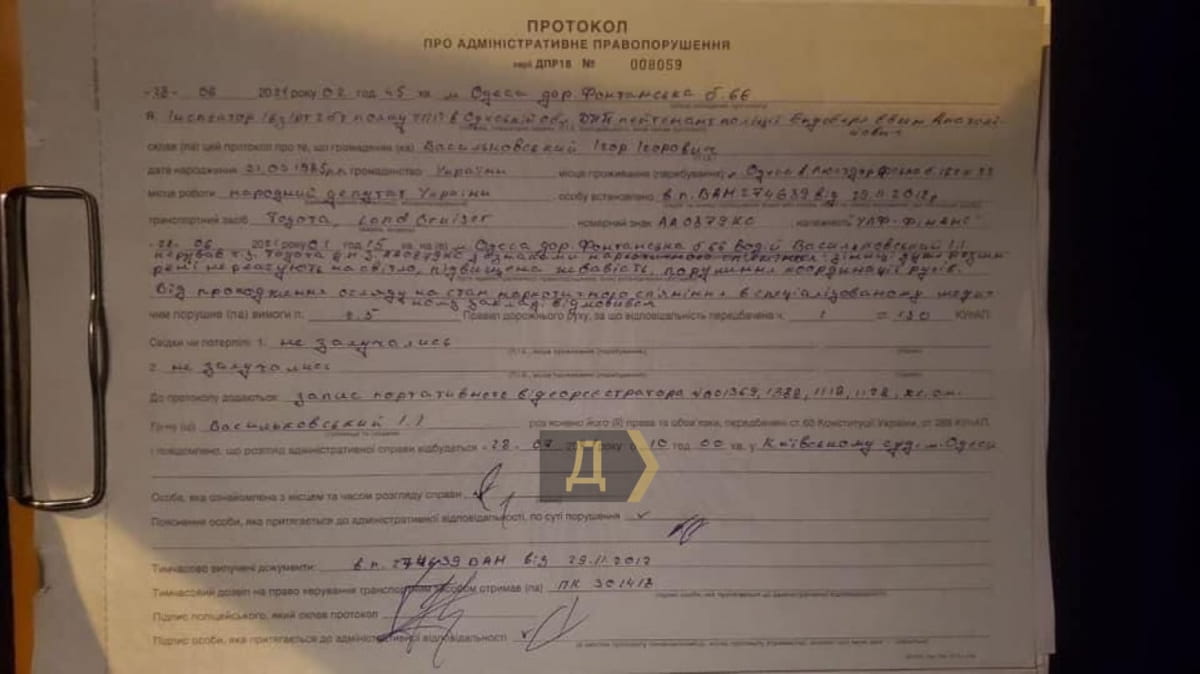 ПРОТОКОЛ
ПРО АДМІНІСТРАТИВНЕ ПРАВОПОРУШЕННЯ
серії ДПР18 № 008059
"28" 06 2021 року 02 год 45 хв м Одеса дор. Фонтанська б. 66
Я, Інспектор лейтенант поліції
склав (ла) цей протокол про те, що громадянин (ка) Васильковський Ігор Ігорович
дата народження громадянство України місце проживання (перебування) м. Одеса
місце роботи народний депутат України особу встановлено в.п. ВАН 274639 від 29.11.2012р
транспортний засіб Toyota Land Cruiser номерний знак АА0879КС належність "УЛФ-ФІНАНС"
"28" 06 2021 року 01 год 15 хв. на (в) м. Одеса дор. Фонтанська б 66 водій Васильковський І.І.
керував т.з. Тойота д.н.з. АА0879КС з ознаками наркотичного сп'яніння: зіниці дуже розши
рені не реагують на світло, підвищена жвавість, порушення координації рухів.
Від проходження огляду на стан наркотичного сп'яніння в спеціалізованому меди
чному закладі відмовився
чим порушив (ла) вимоги п. 2.5 Правил дорожнього руху, за що відповідальність передбачена ч. 1 ст. 130 КУпАП.
Свідки чи потерпілі: 1. не залучались
2. не залучались
До протоколу додаються: запис портативного відеореєстратора
Гр-ну (ці) Васильковський І.І роз'яснено його (її) права та обов'язки, передбачені ст. 63 Конституції України, ст. 268 КУпАП,
і повідомлено, що розгляд адміністративної справи відбудеться "28" 07 2021 року о 10 год 00 хв. у Київському суді м. Одеси
Д
Особа, яка ознайомлена з місцем та часом розгляду справи
Пояснення особи, яка притягається до адміністративної відповідальності, по суті порушення
Тимчасово вилучені документи: в.п. 274639 ВАН від 29.11.2012
Тимчасовий дозвіл на право керування транспортним засобом отримав (ла) ПК 301418
Підпис поліцейського, який склав протокол
Підпис особи, яка притягається до адміністративної відповідальності